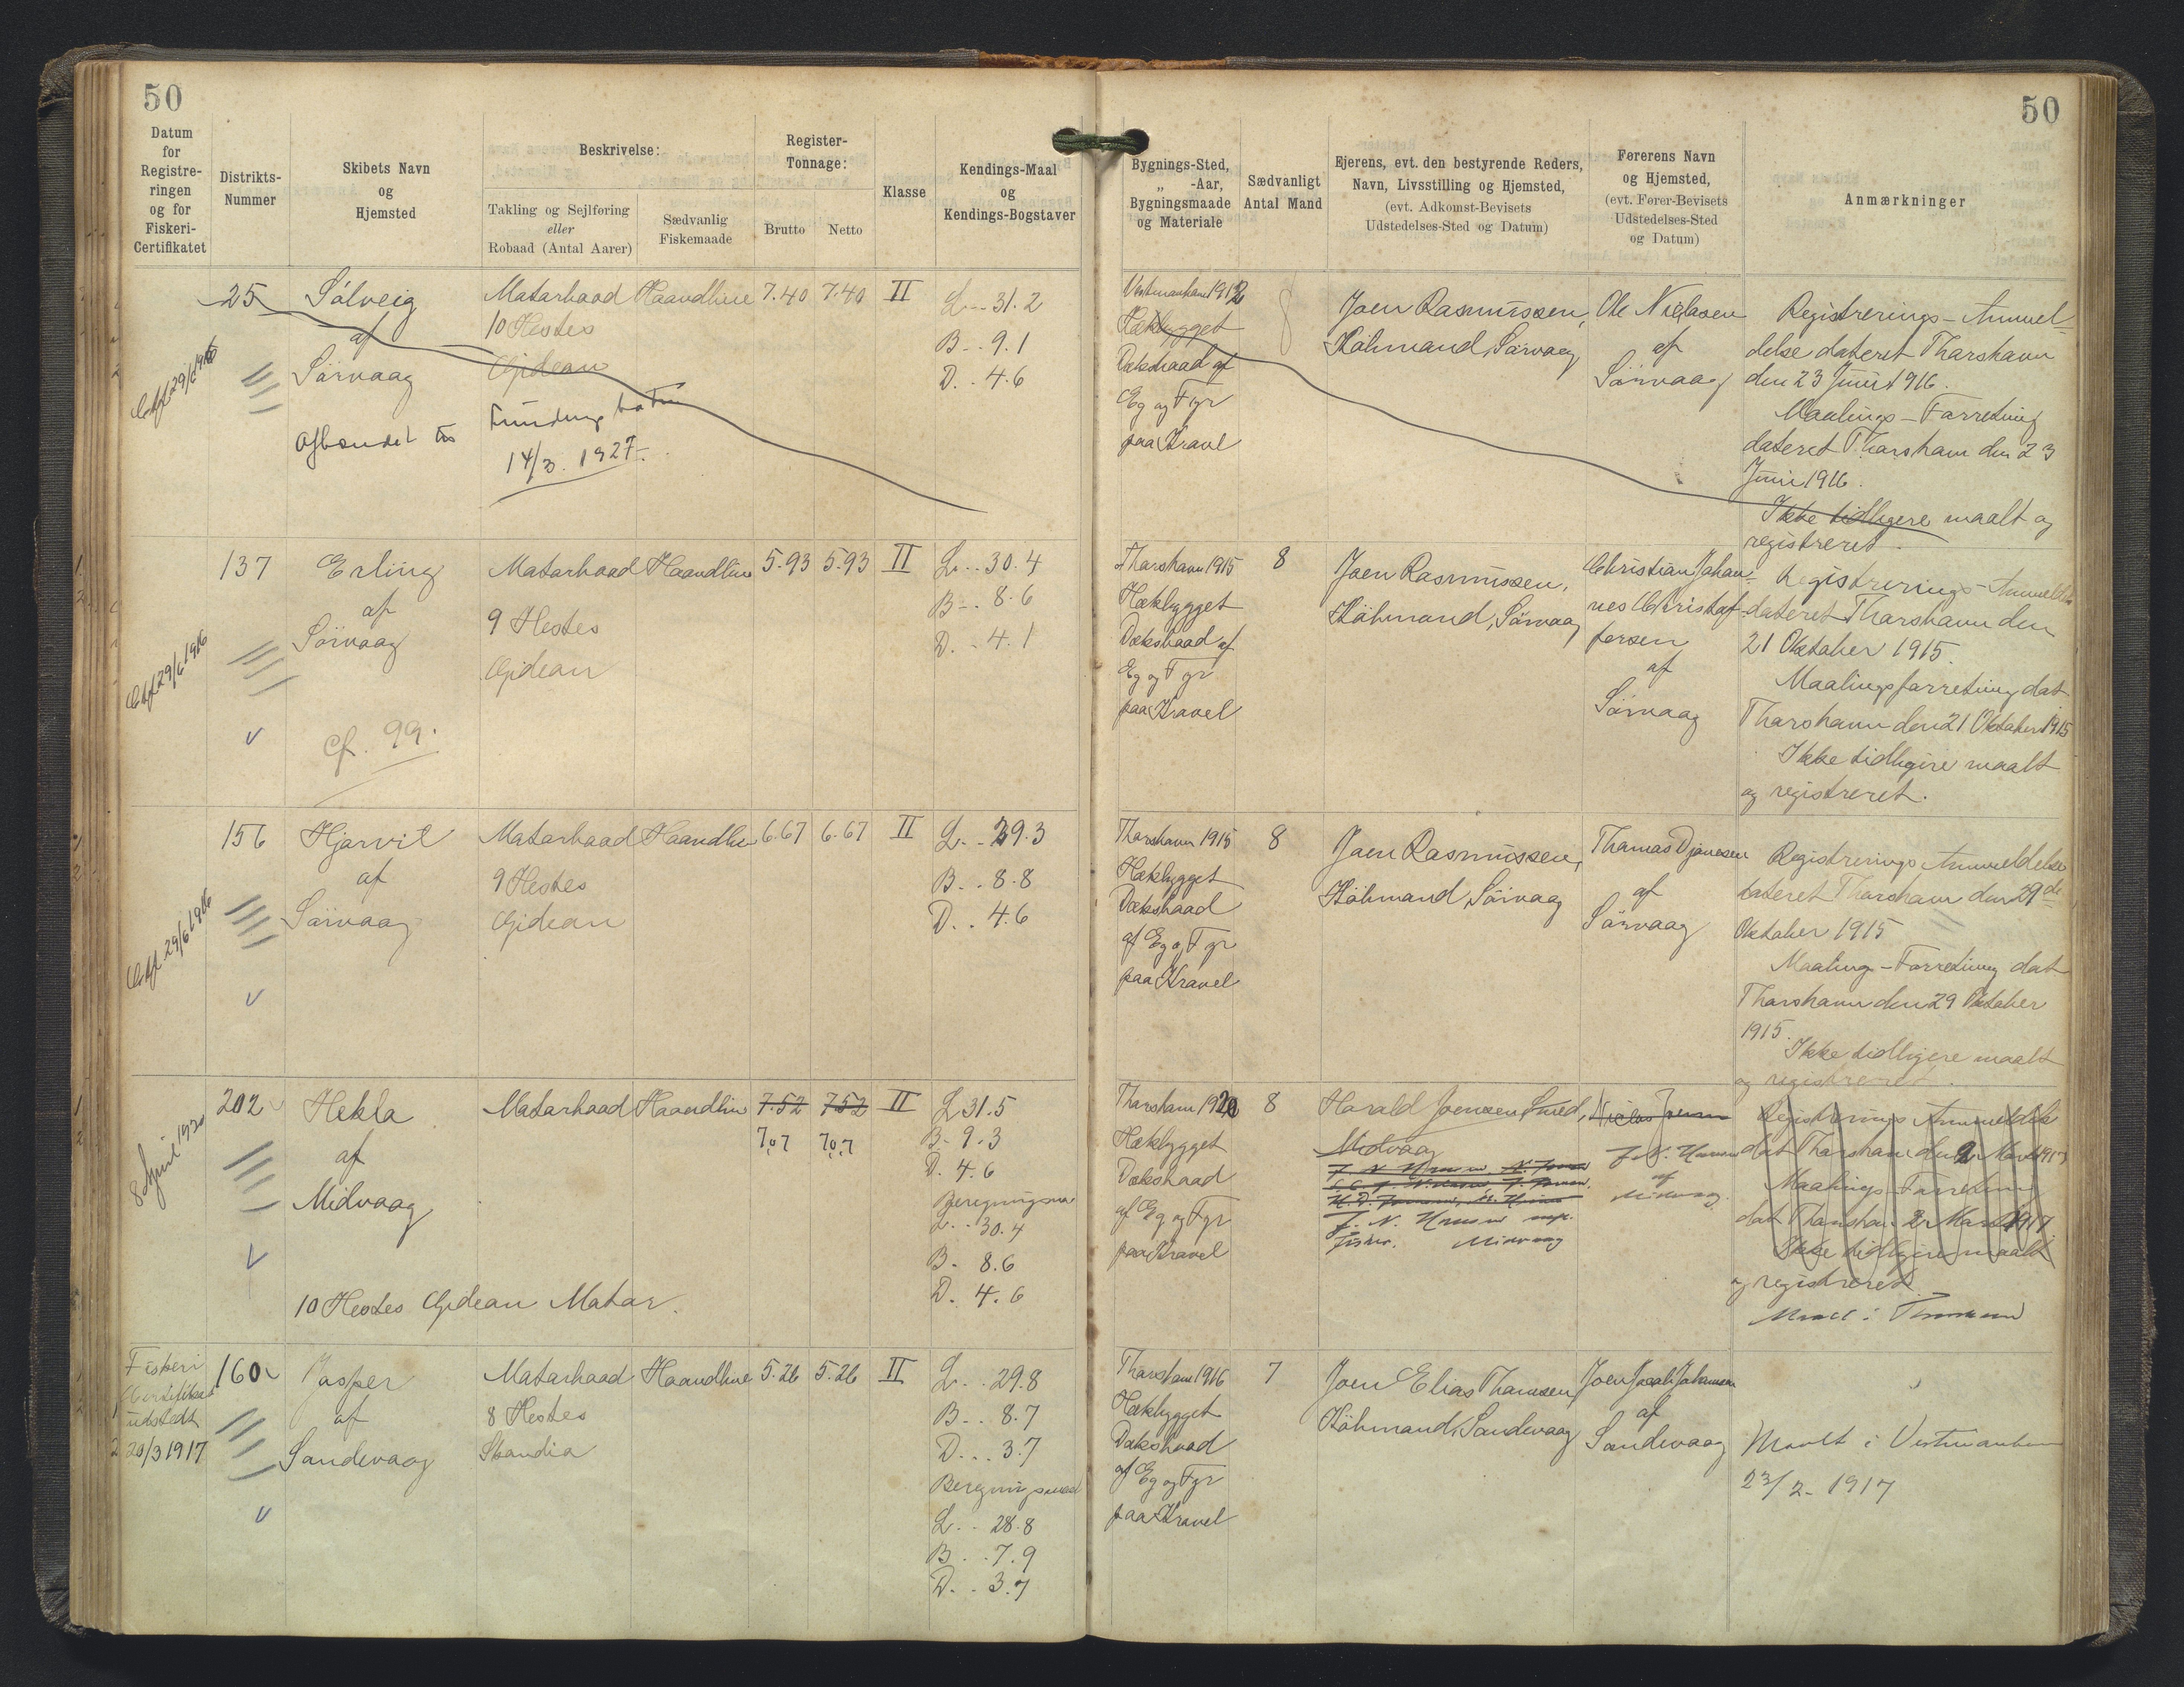 50
Datum
for
Registre-
ringen
og for
Fiskeri-
Certifikatet
Distrikts-
Nummer
Skibets Navn
og
Hjemsted
Beskrivelse:
Takling og Sejlføring
eller
Robaad (Antal Aarer)
Sædvanlig
Fiskemaade
Register-
Tonnage:
Brutto
Netto
Klasse
Kendings-Maal
og
Kendings-Bogstaver
25
Sólveig
af
Sörvaag
Motorbaad
10 Hestes
Gideon
Haandline
7.40
7.40
II
L... 31.2
B... 9.1
D... 4.6
29/6 1916
Afhændet til
14/3. 1927.
137
Erling
af
Sörvaag
cf. 99.
Motorbaad
9 Hestes
Gideon
Haandline
5.93
5.93
II
L... 30.4
B... 8.6
D... 4.1
29/6 1916
156
Hjørvil
af
Sörvaag
Motorbaad
9 Hestes
Gideon
Haandline
6.67
6.67
II
L... 29.3
B... 8.8
D... 4.6
29/6 1916
8 April 1920
202
Hekla
af
Midvaag
10 Hestes Gideon Motor.
Motorbaad
Haandline
7.52
7.52
7.07
7.07
II
L 31.5
B. 9.3
D. 4.6
L... 30.4
B. 8.6
D. 4.6
Fiskeri
Certifikat
udstedt
20/3 1917
160
Jasper
af
Sandevaag
Motorbaad
8 Hestes
Skandia
Haandline
5.26
5.26
II
L... 29.8
B... 8.7
D... 3.7
L... 28.8
B... 7.9
D... 3.7
50
Bygnings-Sted,
„ -Aar,
Bygningsmaade
og Materiale
Sædvanligt
Antal Mand
Ejerens, evt. den bestyrende Reders,
Navn, Livsstilling og Hjemsted,
(evt. Adkomst-Bevisets
Udstedelses-Sted og Datum)
Førerens Navn
og Hjemsted,
(evt. Fører-Bevisets
Udstedelses-Sted
og Datum)
Anmærkninger
Vestmanhavn 1912
Hækbygget
Dæksbaad af
Eg og Fyr
paa Kravel
8
Joen Rasmussen,
Köbmand, Sörvaag
Ole Niclasen
af
Sörvaag
Registrerings-Anmel-
delse dateret Thorshavn
den 23 Juni 1916.
Maalings-Forretning
dateret Thorshavn den 23
Juni 1916.
Ikke tidligere maalt og
registreret.
Thorshavn 1915
Hækbygget
Dæksbaad af
Eg og Fyr
paa Kravel
8
Joen Rasmussen,
Köbmand, Sörvaag
Christian Johan-
nes Christof-
fersen
af
Sörvaag
Registrerings-Anmeldelse
dateret Thorshavn den
21 Oktober 1915.
Maalingsforretning dat
Thorshavn den 21 Oktober 1915
Ikke tidligere maalt
og registreret.
Thorshavn 1915
Hækbygget
Dæksbaad
af Eg og Fyr
paa Kravel
8
Joen Rasmussen,
Köbmand, Sörvaag
Thomas Djonesen
af
Sörvaag
Registrerings Anmeldelse
dateret Thorshavn den 29de
Oktober 1915
Maaling-Forretning dat
Thorshavn den 29 Oktober
1915.
Ikke tidligere maalt
og registreret.
Thorshavn 1920
Hækbygget
Dæksbaad
af Eg og Fyr
paa Kravel
8
Harald Joensen Smed,
Midvaag
Fisker. Midvaag
af
Midvaag
Registrerings Anmeldelse
dat Thorshavn den 2 Marts 1917
Maalings-Forretning
dat Thorshavn 2 Marts 1917
Ikke tidligere maalt
og registreret.
Maalt i Thorshavn
Thorshavn 1916
Hækbygget
Dæksbaad
af Eg og Fyr
paa Kravel
7
Joen Elias Thomsen
Köbmand, Sandevaag
Joen Jacob Johansen
af
Sandevaag
Maalt i Vestmanhavn
23/2 - 1917